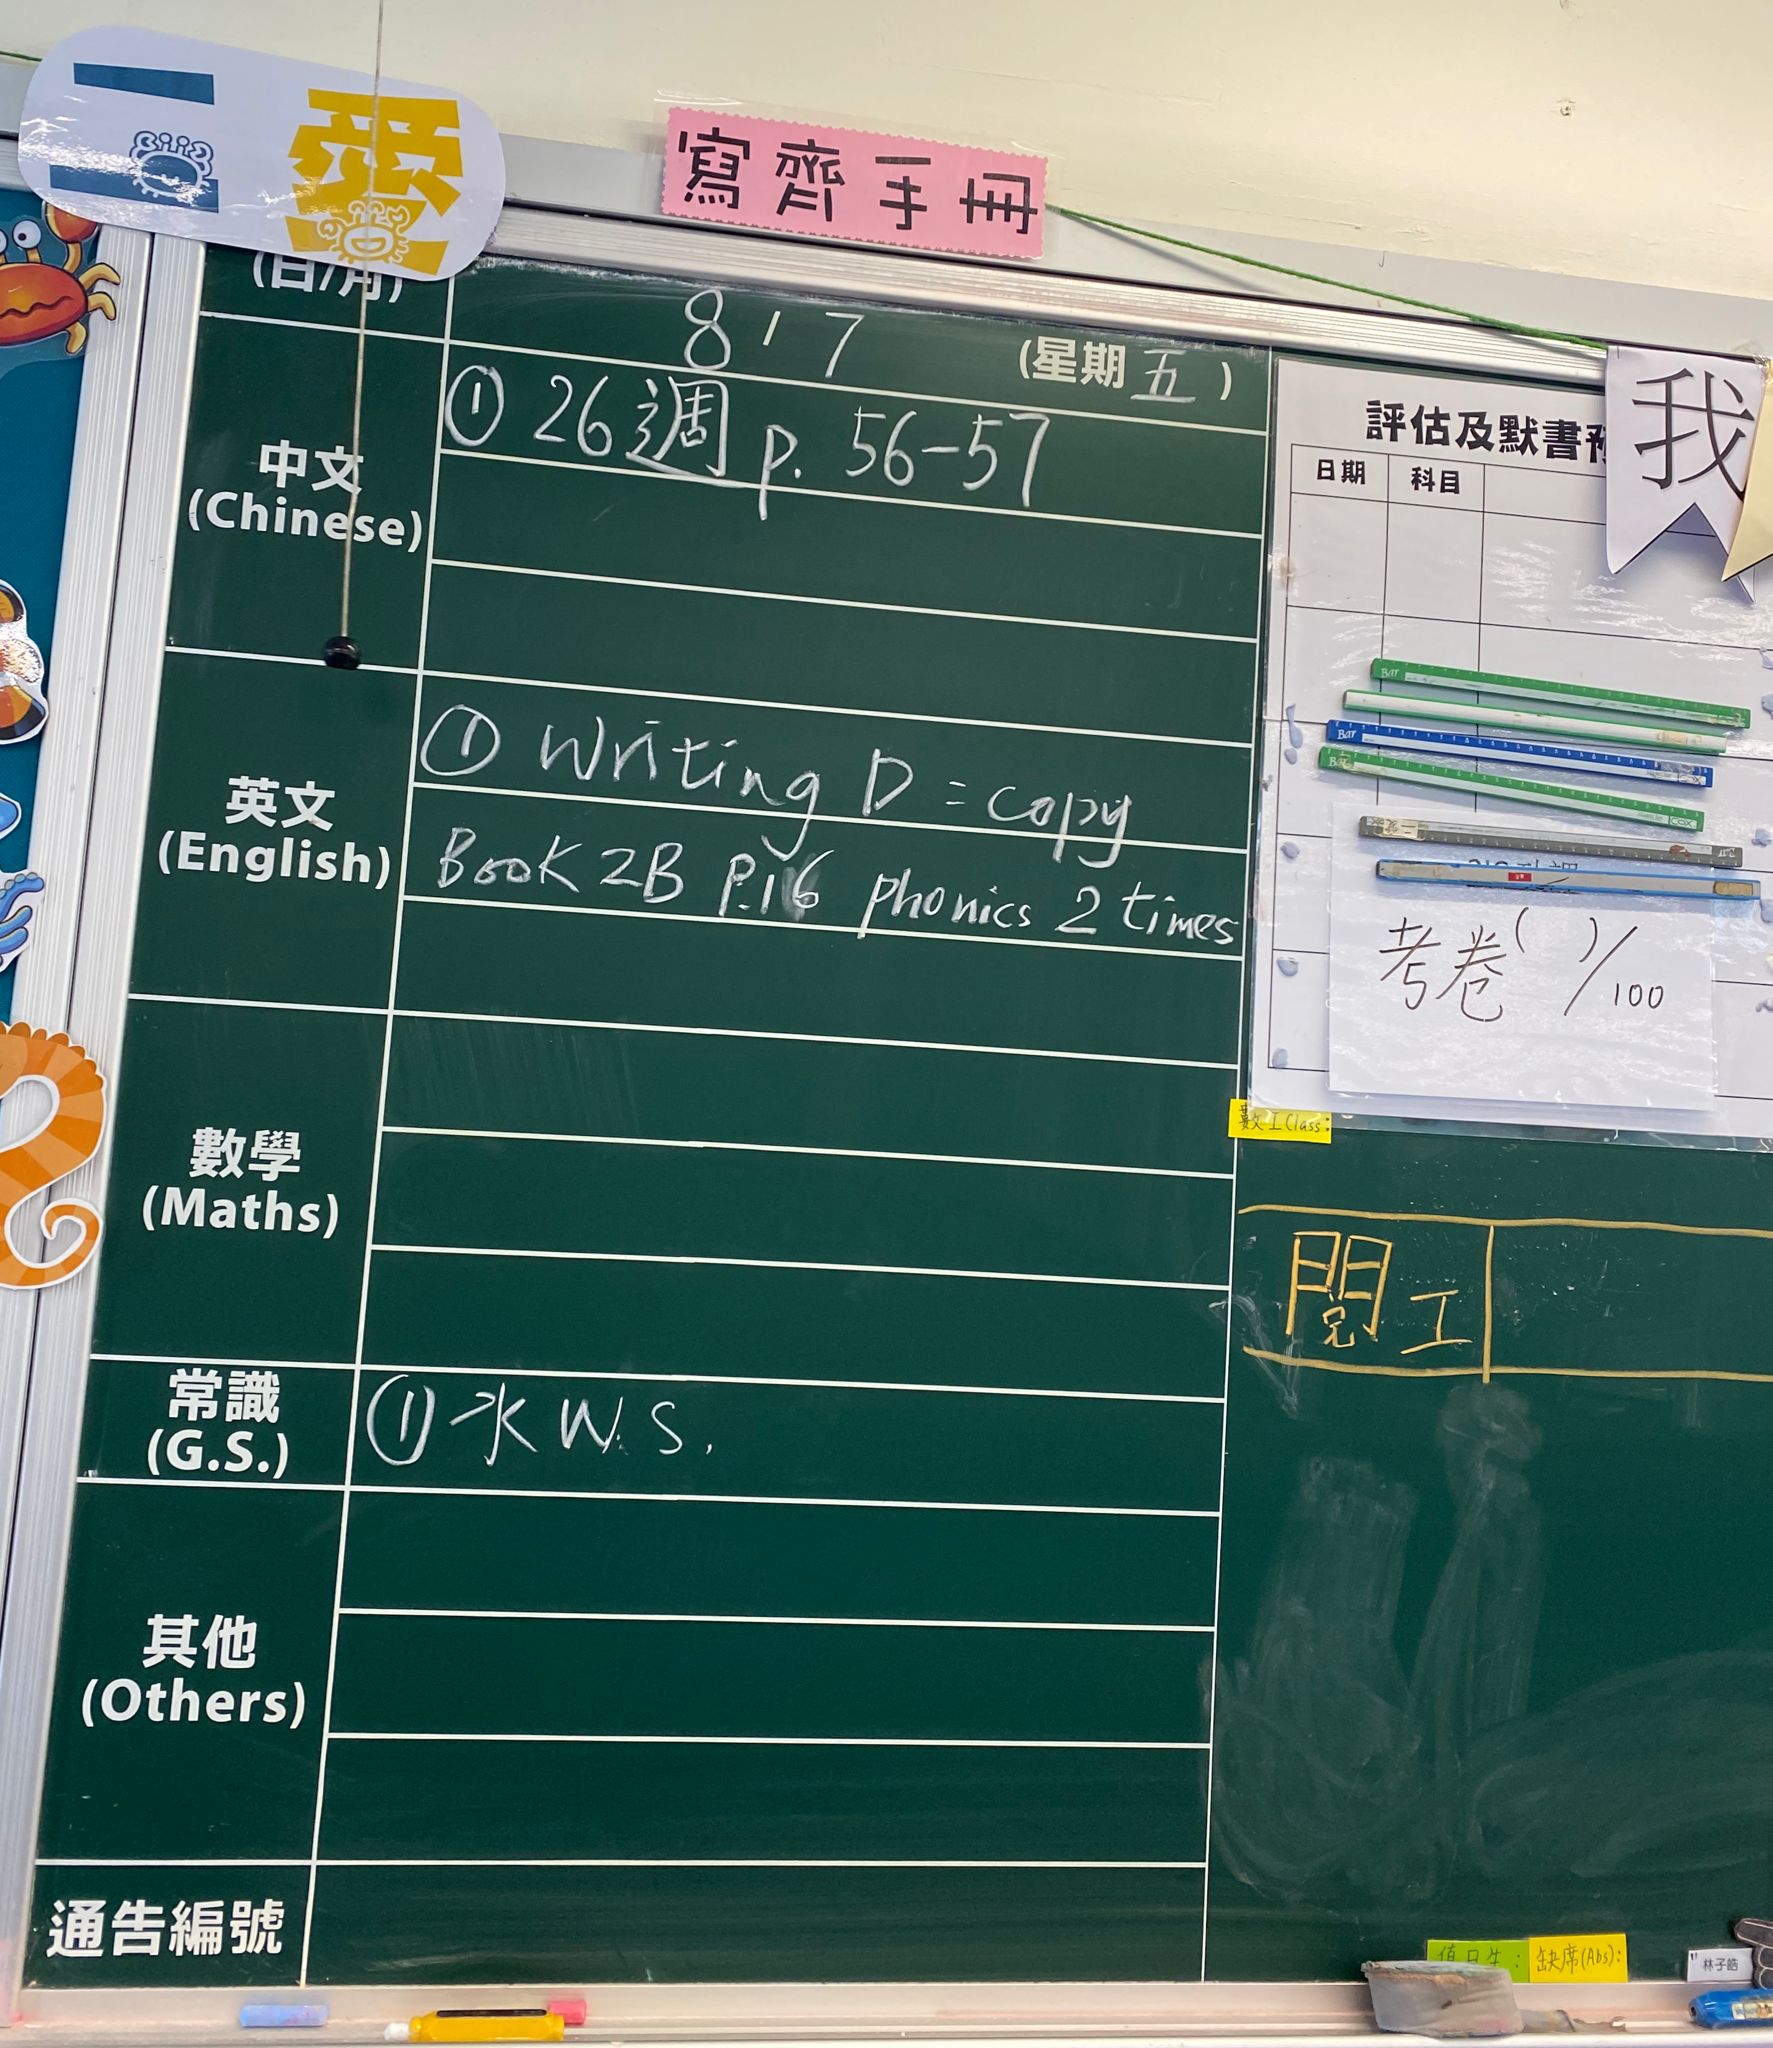 二愛
寫齊手冊
(日/月)
8 / 7
(星期五)
中文
(Chinese)
① 26週 p. 56-57
英文
(English)
① Writing D = copy
Book 2B P.16 phonics 2 times
數學
(Maths)
常識
(G.S.)
① 水 W.S.
其他
(Others)
通告編號
我
評估及默書
日期
科目
Bar
Bar
Bar
COX
考卷( )/100
數工Class:
閱工
值日生:
缺席(Abs):
林子皓